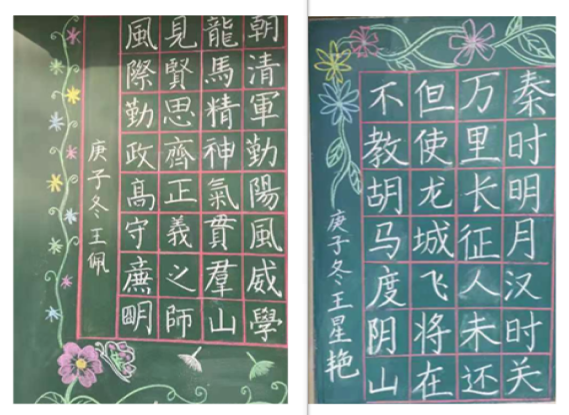 朝清軍勤陽風威學
龍馬精神氣貫羣山
見賢思齊正義之師
風際勤政髙守廉朙
庚子冬王佩
秦时明月汉时关
万里长征人未还
但使龙城飞将在
不教胡马度阴山
庚子冬王星艳